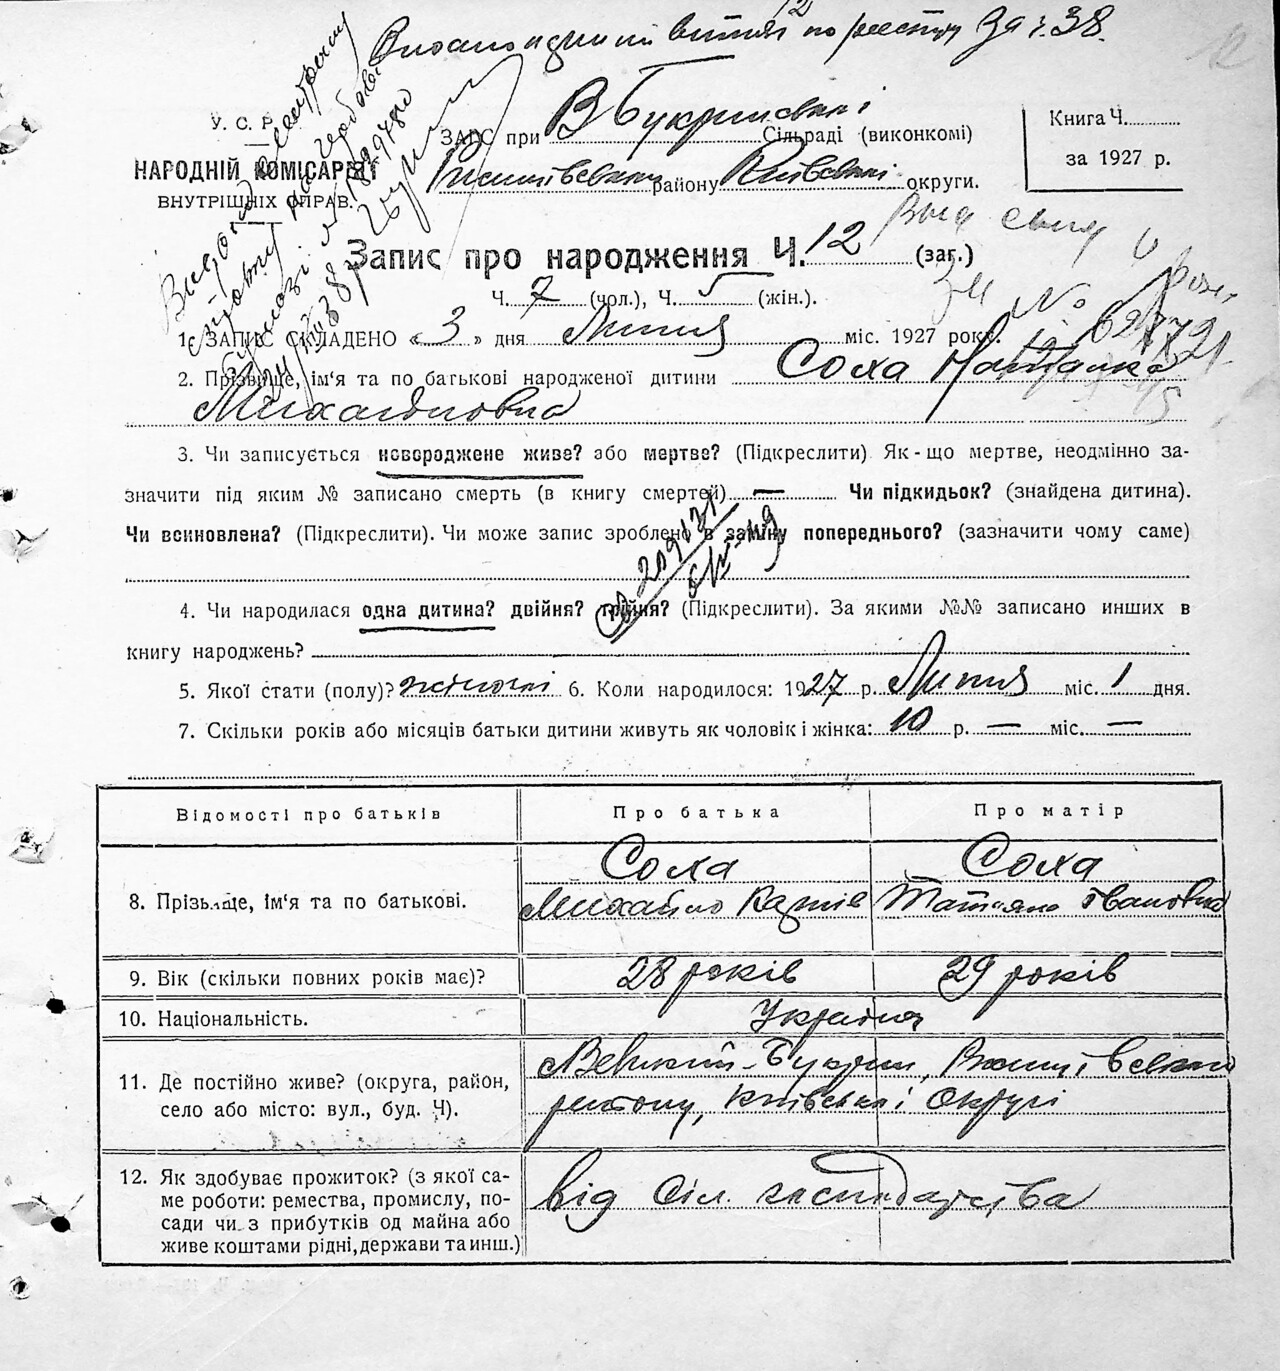 12
по реєстру За ч. 38.
У. С. Р.
НАРОДНІЙ КОМІСАРІЯТ
ВНУТРІШНІХ СПРАВ.
ЗАГС при В Букринській Сільраді (виконкомі)
району Київської округи.
Книга Ч.
за 1927 р.
Запис про народження Ч. 12 (заг.)
Ч. 7 (чол.), Ч. 5 (жін.).
1. ЗАПИС СКЛАДЕНО «3» дня Липня міс. 1927 року.
2. Прізвище, ім'я та по батькові народженої дитини Соха Наталка
Михайловна
3. Чи записується новороджене живе? або мертве? (Підкреслити) Як-що мертве, неодмінно за-
значити під яким № записано смерть (в книгу смертей) — Чи підкидьок? (знайдена дитина).
Чи всиновлена? (Підкреслити). Чи може запис зроблено в заміну попереднього? (зазначити чому саме)
4. Чи народилася одна дитина? двійня? трійня? (Підкреслити). За якими №№ записано инших в
книгу народжень?
5. Якої стати (полу)? жіночої 6. Коли народилося: 1927 р. Липня міс. 1 дня.
7. Скільки років або місяців батьки дитини живуть як чоловік і жінка: 10 р. — міс. —
Відомості про батьків
Про батька
Про матір
8. Прізвище, ім'я та по батькові.
Соха
Михайло
Соха
Татьяна Івановна
9. Вік (скільки повних років має)?
28 років
29 років
10. Національність.
Україна
11. Де постійно живе? (округа, район,
село або місто: вул., буд. Ч).
Великий-Букрин,
району, Київської Округи
12. Як здобуває прожиток? (з якої са-
ме роботи: ремества, промислу, по-
сади чи з прибутків од майна або
живе коштами рідні, держави та инш.)
від Сіл. господарства